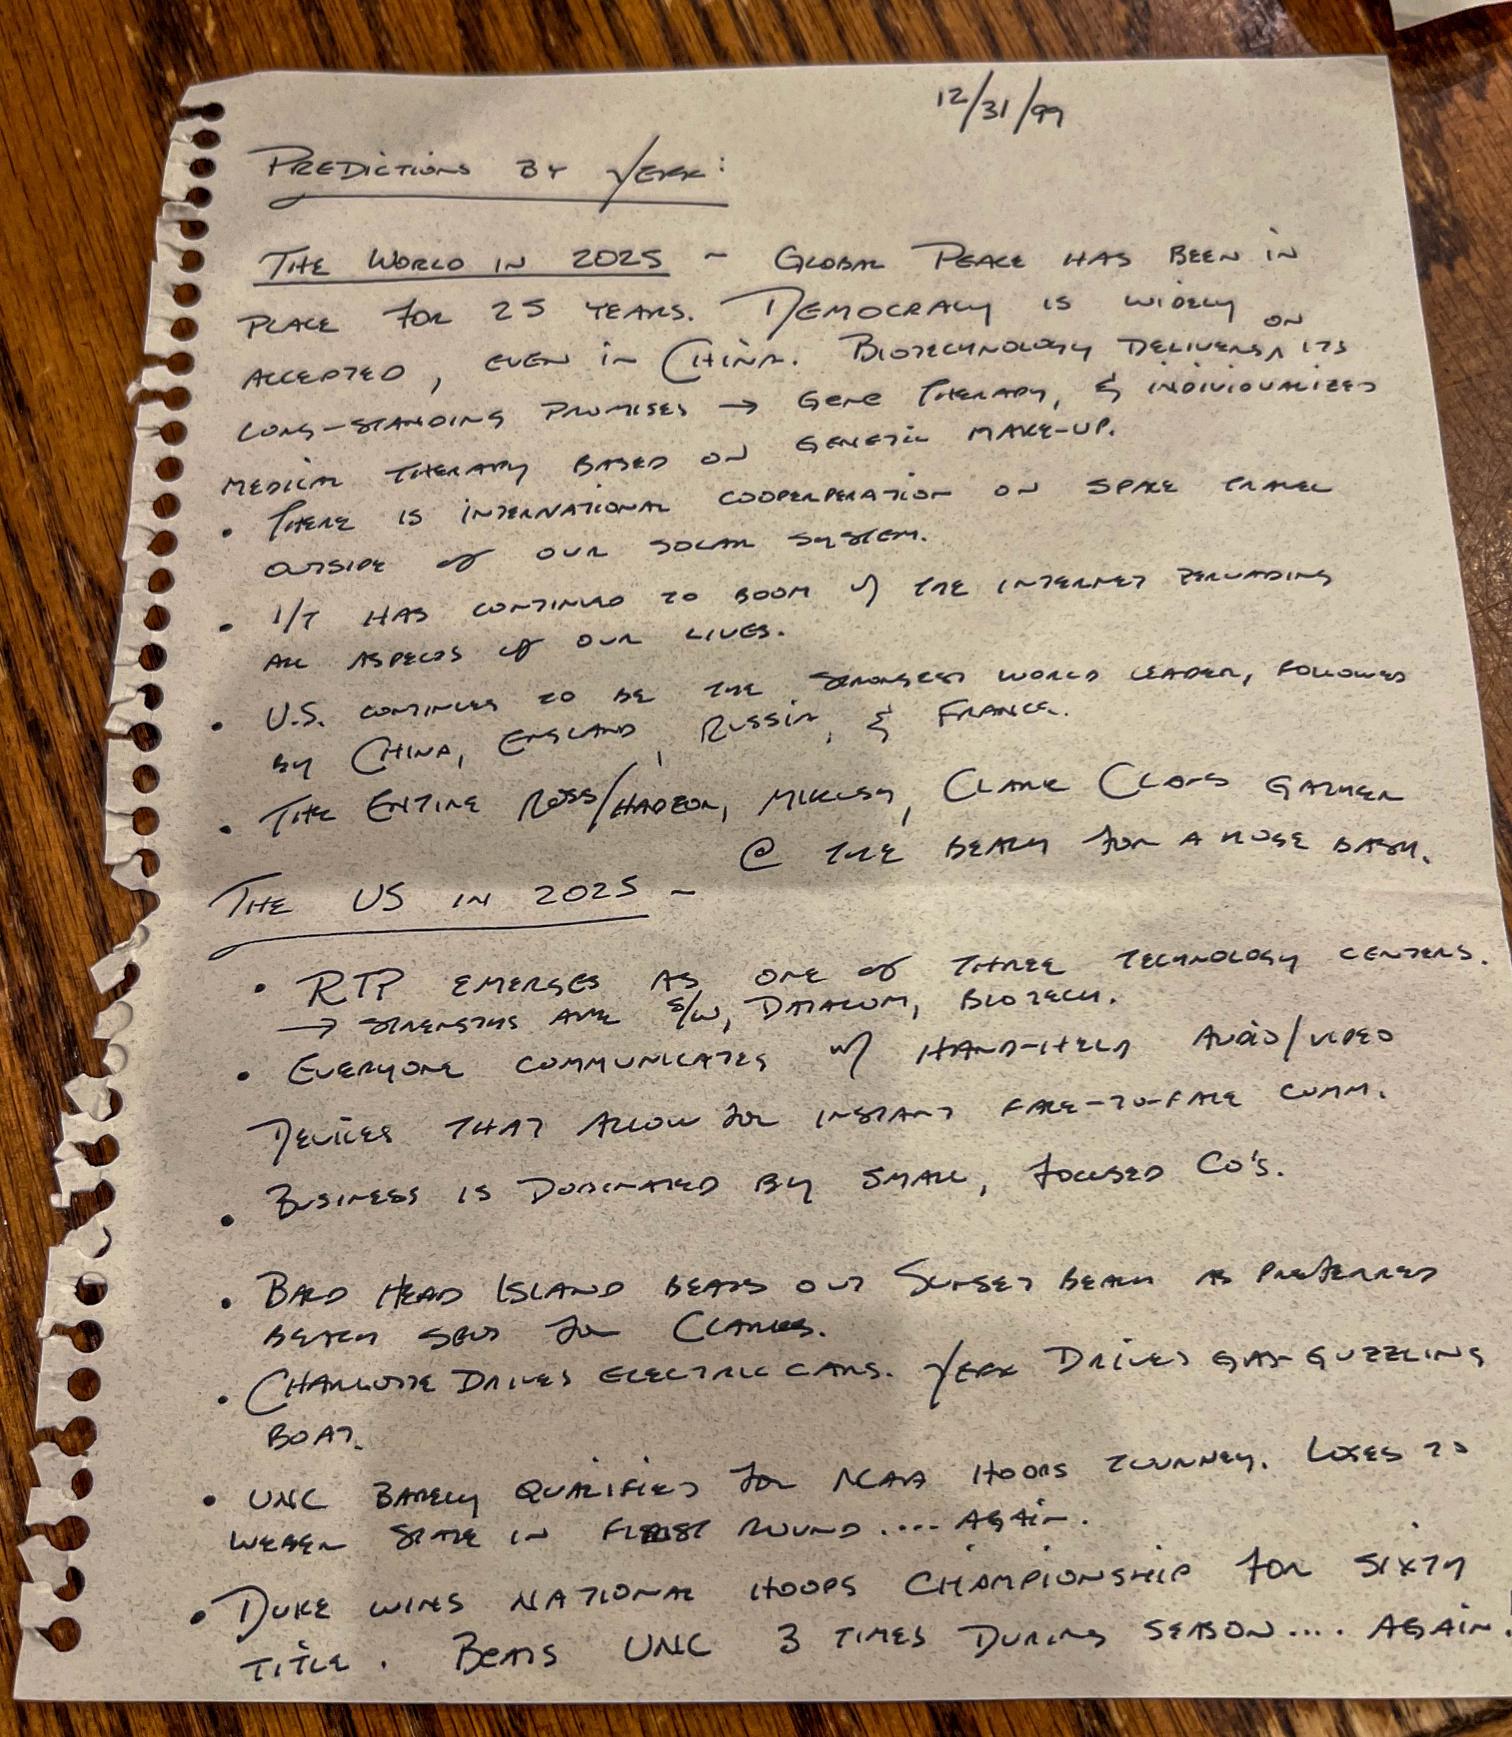 12/31/99
PREDICTIONS BY YERK:
THE WORLD IN 2025 ~ GLOBAL PEACE HAS BEEN IN
PLACE FOR 25 YEARS. DEMOCRACY IS WIDELY
ACCEPTED, EVEN IN CHINA. BIOTECHNOLOGY DELIVERS ON ITS
LONG-STANDING PROMISES → GENE THERAPY, & INDIVIDUALIZED
MEDICAL THERAPY BASED ON GENETIC MAKE-UP.
• THERE IS INTERNATIONAL COOPERPERATION ON SPACE TRAVEL
OUTSIDE OF OUR SOLAR SYSTEM.
• I/T HAS CONTINUED TO BOOM W/ THE INTERNET PERVADING
ALL ASPECTS OF OUR LIVES.
• U.S. CONTINUES TO BE THE STRONGEST WORLD LEADER, FOLLOWED
BY CHINA, ENGLAND, RUSSIA, & FRANCE.
• THE ENTIRE ROSS/HADEON, CLARK CLANS GATHER
@ THE BEACH FOR A HUGE BASH.
THE US IN 2025 ~
• RTP EMERGES AS ONE OF THREE TECHNOLOGY CENTERS.
→ STRENGTHS ARE S/W, DATACOM, BIOTECH.
• EVERYONE COMMUNICATES W/ HAND-HELD AUDIO/VIDEO
DEVICES THAT ALLOW FOR INSTANT FACE-TO-FACE COMM.
• BUSINESS IS DOMINATED BY SMALL, FOCUSED CO'S.
• BALD HEAD ISLAND BEATS OUT SUNSET BEACH AS PREFERRED
BEACH SPOT FOR CLARKS.
• CHARLOTTE DRIVES ELECTRIC CARS. YERK DRIVES GAS-GUZZLING
BOAT.
• UNC BARELY QUALIFIES FOR NCAA HOOPS TOURNEY. LOSES TO
WEBER STATE IN FIRST ROUND .... AGAIN.
• DUKE WINS NATIONAL HOOPS CHAMPIONSHIP FOR SIXTH
TITLE. BEATS UNC 3 TIMES DURING SEASON.... AGAIN!